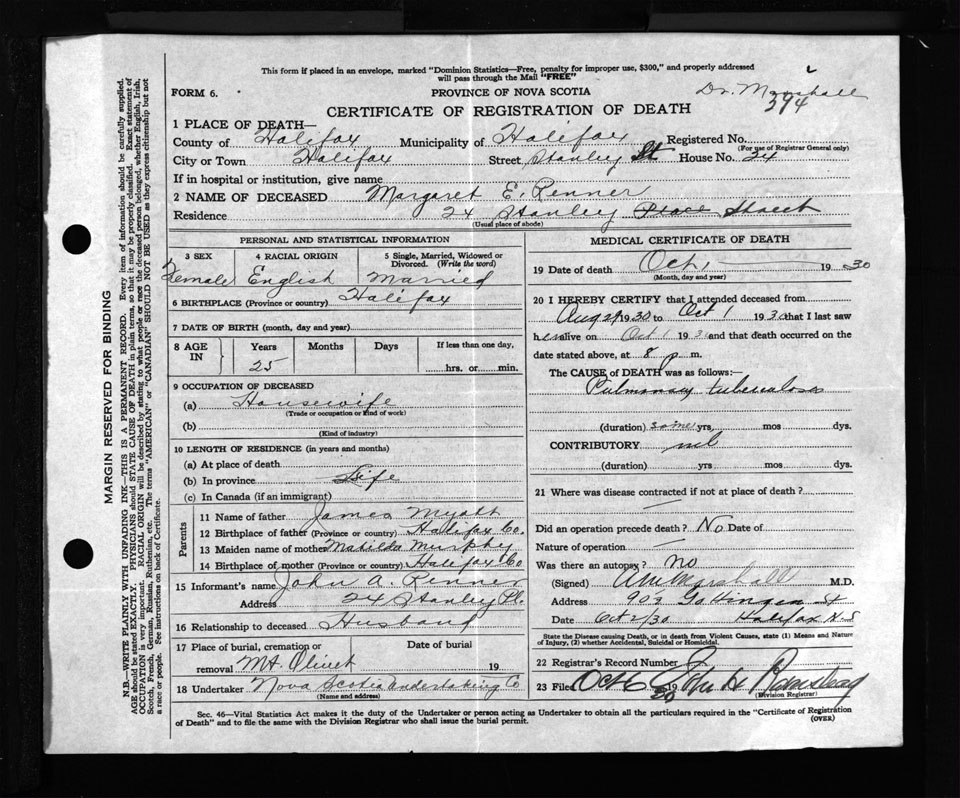 This form if placed in an envelope, marked "Dominion Statistics—Free, penalty for improper use, $300," and properly addressed
will pass through the Mail "FREE"
FORM 6.
PROVINCE OF NOVA SCOTIA
Dr. Marshall
394
CERTIFICATE OF REGISTRATION OF DEATH
1 PLACE OF DEATH—
County of Halifax Municipality of Halifax Registered No.
(For use of Registrar General only)
City or Town Halifax Street Stanley St House No. 24
If in hospital or institution, give name
2 NAME OF DECEASED Margaret E. Renner
Residence 24 Stanley Place Street
(Usual place of abode)
PERSONAL AND STATISTICAL INFORMATION
3 SEX 4 RACIAL ORIGIN 5 Single, Married, Widowed or Divorced. (Write the word)
Female English Married
6 BIRTHPLACE (Province or country) Halifax
7 DATE OF BIRTH (month, day and year)
8 AGE IN Years Months Days If less than one day,
25 hrs. or min.
9 OCCUPATION OF DECEASED
(a) Housewife
(Trade or occupation or kind of work)
(b)
(Kind of industry)
10 LENGTH OF RESIDENCE (in years and months)
(a) At place of death
(b) In province Life
(c) In Canada (if an immigrant)
Parents
11 Name of father James Myatt
12 Birthplace of father (Province or country) Halifax Co.
13 Maiden name of mother Matilda Murphy
14 Birthplace of mother (Province or country) Halifax Co
15 Informant's name John A. Renner
Address 24 Stanley Pl.
16 Relationship to deceased Husband
17 Place of burial, cremation or Date of burial
removal Mt. Olivet 19
18 Undertaker Nova Scotia Undertaking Co
(Name and address)
MEDICAL CERTIFICATE OF DEATH
19 Date of death Oct 1 1930
(Month, day and year)
20 I HEREBY CERTIFY that I attended deceased from
Aug 21 1930 to Oct 1 1930 that I last saw
her alive on Oct 1 1930 and that death occurred on the
date stated above, at 8 p. m.
The CAUSE of DEATH was as follows:—
Pulmonary tuberculosis
(duration) some yrs. mos. dys.
CONTRIBUTORY nil
(duration) yrs. mos. dys.
21 Where was disease contracted if not at place of death?
—
Did an operation precede death? No Date of
Nature of operation —
Was there an autopsy? no
(Signed) Marshall M.D.
Address 903 Gottingen St
Date Oct 2/30 Halifax N.S
State the Disease causing Death, or in death from Violent Causes, state (1) Means and Nature
of Injury, (2) whether Accidental, Suicidal or Homicidal.
22 Registrar's Record Number
23 Filed Oct 6 1930 John H
(Division Registrar)
Sec. 46—Vital Statistics Act makes it the duty of the Undertaker or person acting as Undertaker to obtain all the particulars required in the "Certificate of Registration
of Death" and to file the same with the Division Registrar who shall issue the burial permit.
(OVER)
MARGIN RESERVED FOR BINDING
N.B.—WRITE PLAINLY WITH UNFADING INK—THIS IS A PERMANENT RECORD. Every item of information should be carefully supplied.
AGE should be stated EXACTLY. PHYSICIANS should STATE CAUSE OF DEATH in plain terms, so that it may be properly classified. Exact statement of
OCCUPATION is very important. RACIAL ORIGIN will be described by stating to what people or race the deceased person belonged, whether English, Irish,
Scotch, French, German, Russian, Ruthenian, etc. The terms "AMERICAN" or "CANADIAN" SHOULD NOT BE USED as they express citizenship but not
a race or people. See instructions on back of Certificate.